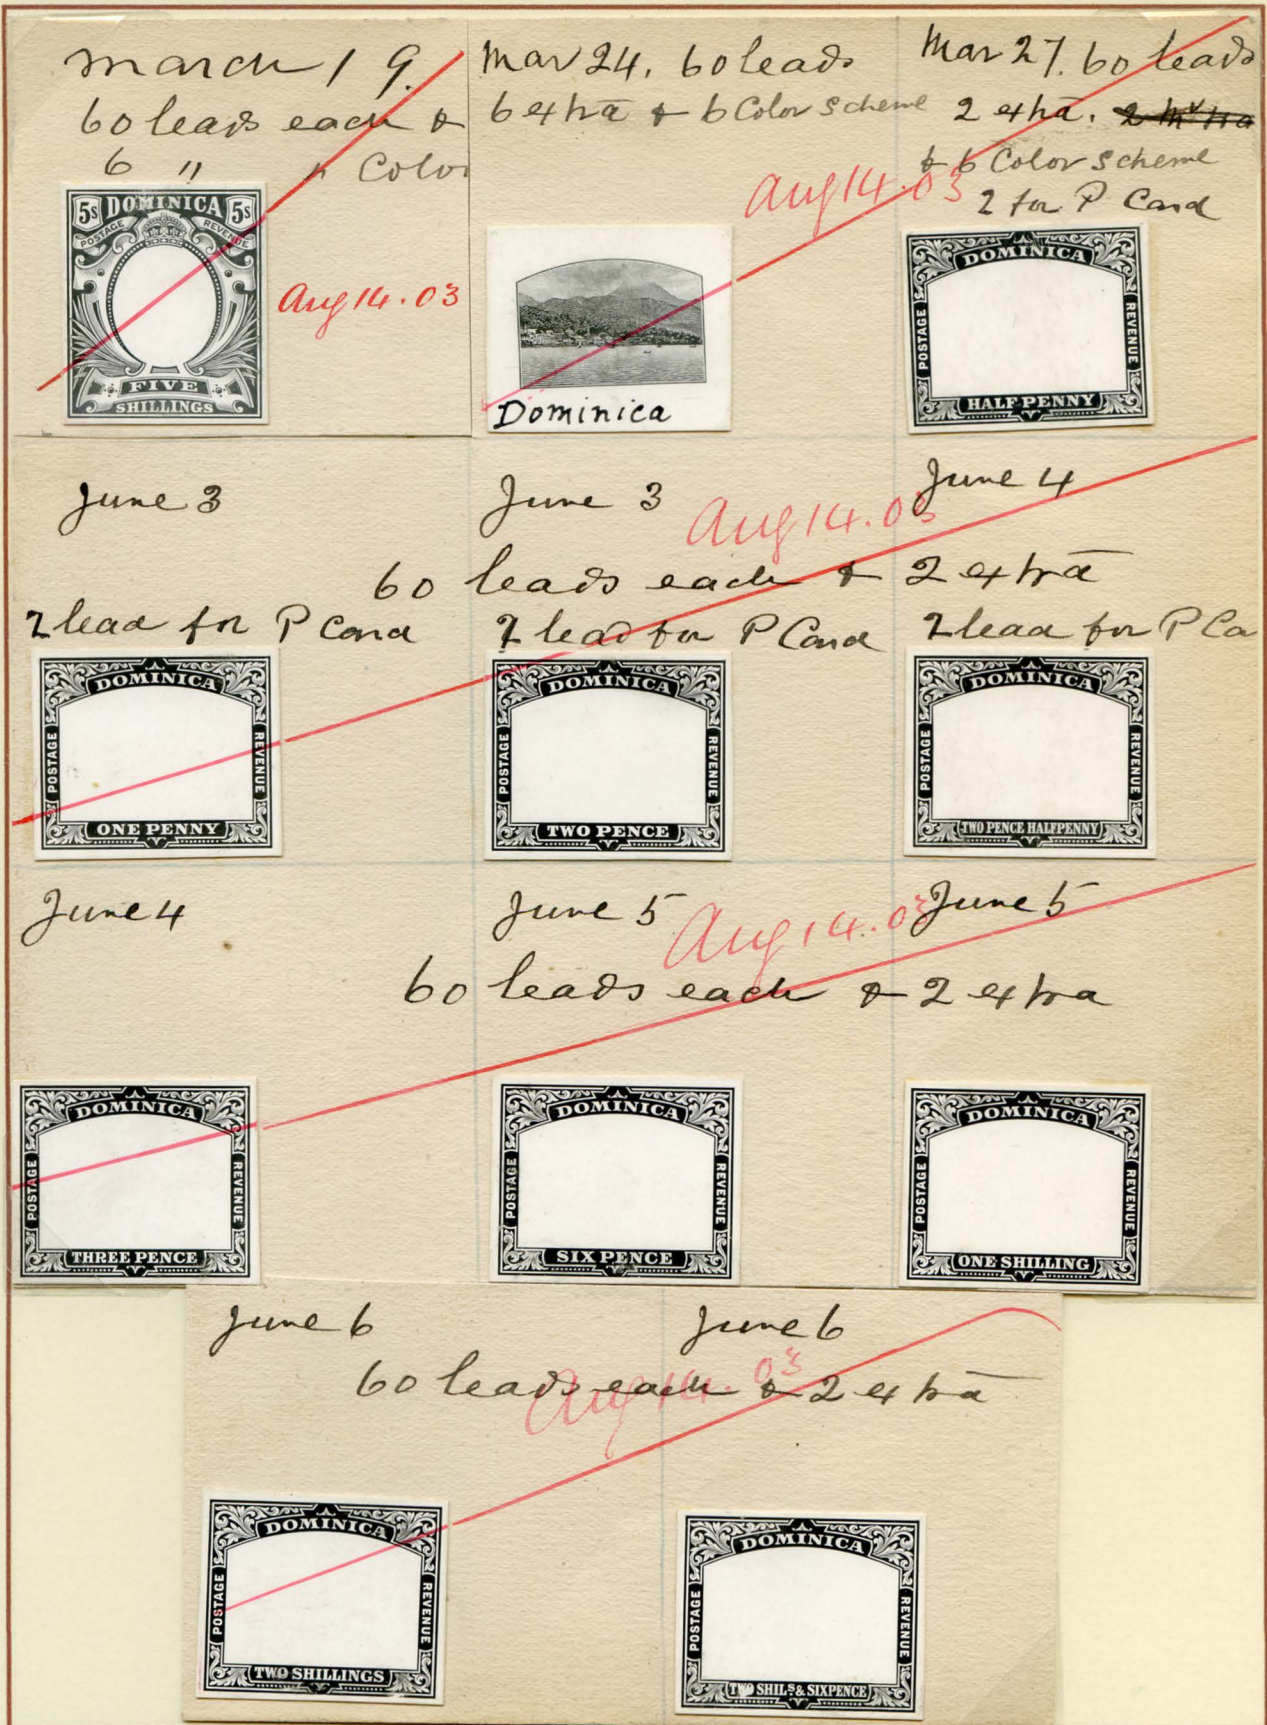 March 19.
60 leads each &
6 " " Color
5s DOMINICA 5s
POSTAGE REVENUE
Aug 14.03
FIVE
SHILLINGS
Mar 24. 60 leads
6 extra & 6 Color Scheme
Aug 14.03
Dominica
Mar 27. 60 leads
2 extra.
& 6 Color Scheme
2 for P Card
DOMINICA
POSTAGE
REVENUE
HALFPENNY
June 3
June 3
June 4
Aug 14.03
60 leads each & 2 extra
2 lead for P Card
2 lead for P Card
2 lead for P Ca
DOMINICA
POSTAGE
REVENUE
ONE PENNY
DOMINICA
POSTAGE
REVENUE
TWO PENCE
DOMINICA
POSTAGE
REVENUE
TWO PENCE HALFPENNY
June 4
June 5
June 5
Aug 14.03
60 leads each & 2 extra
DOMINICA
POSTAGE
REVENUE
THREE PENCE
DOMINICA
POSTAGE
REVENUE
SIX PENCE
DOMINICA
POSTAGE
REVENUE
ONE SHILLING
June 6
June 6
60 leads each & 2 extra
Aug 14.03
DOMINICA
POSTAGE
REVENUE
TWO SHILLINGS
DOMINICA
POSTAGE
REVENUE
TWO SHILS & SIXPENCE